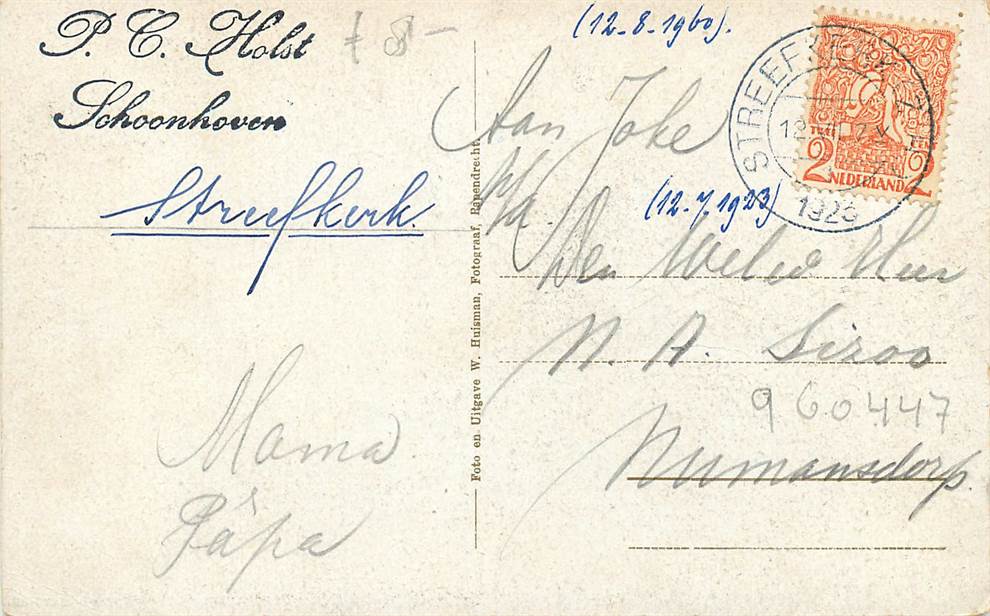 P. C. Holst
Schoonhoven
Streefkerk.
Mama
Pápa
Foto en Uitgave W. Huisman, Fotograaf, Papendrecht
(12-8-1960).
Aan Joke
p/a.
(12-7-1923)
Den Weled Heer
N. A. Sizoo
960447
Numansdorp.
STREEFKERK
1923
2 2
NEDERLAND